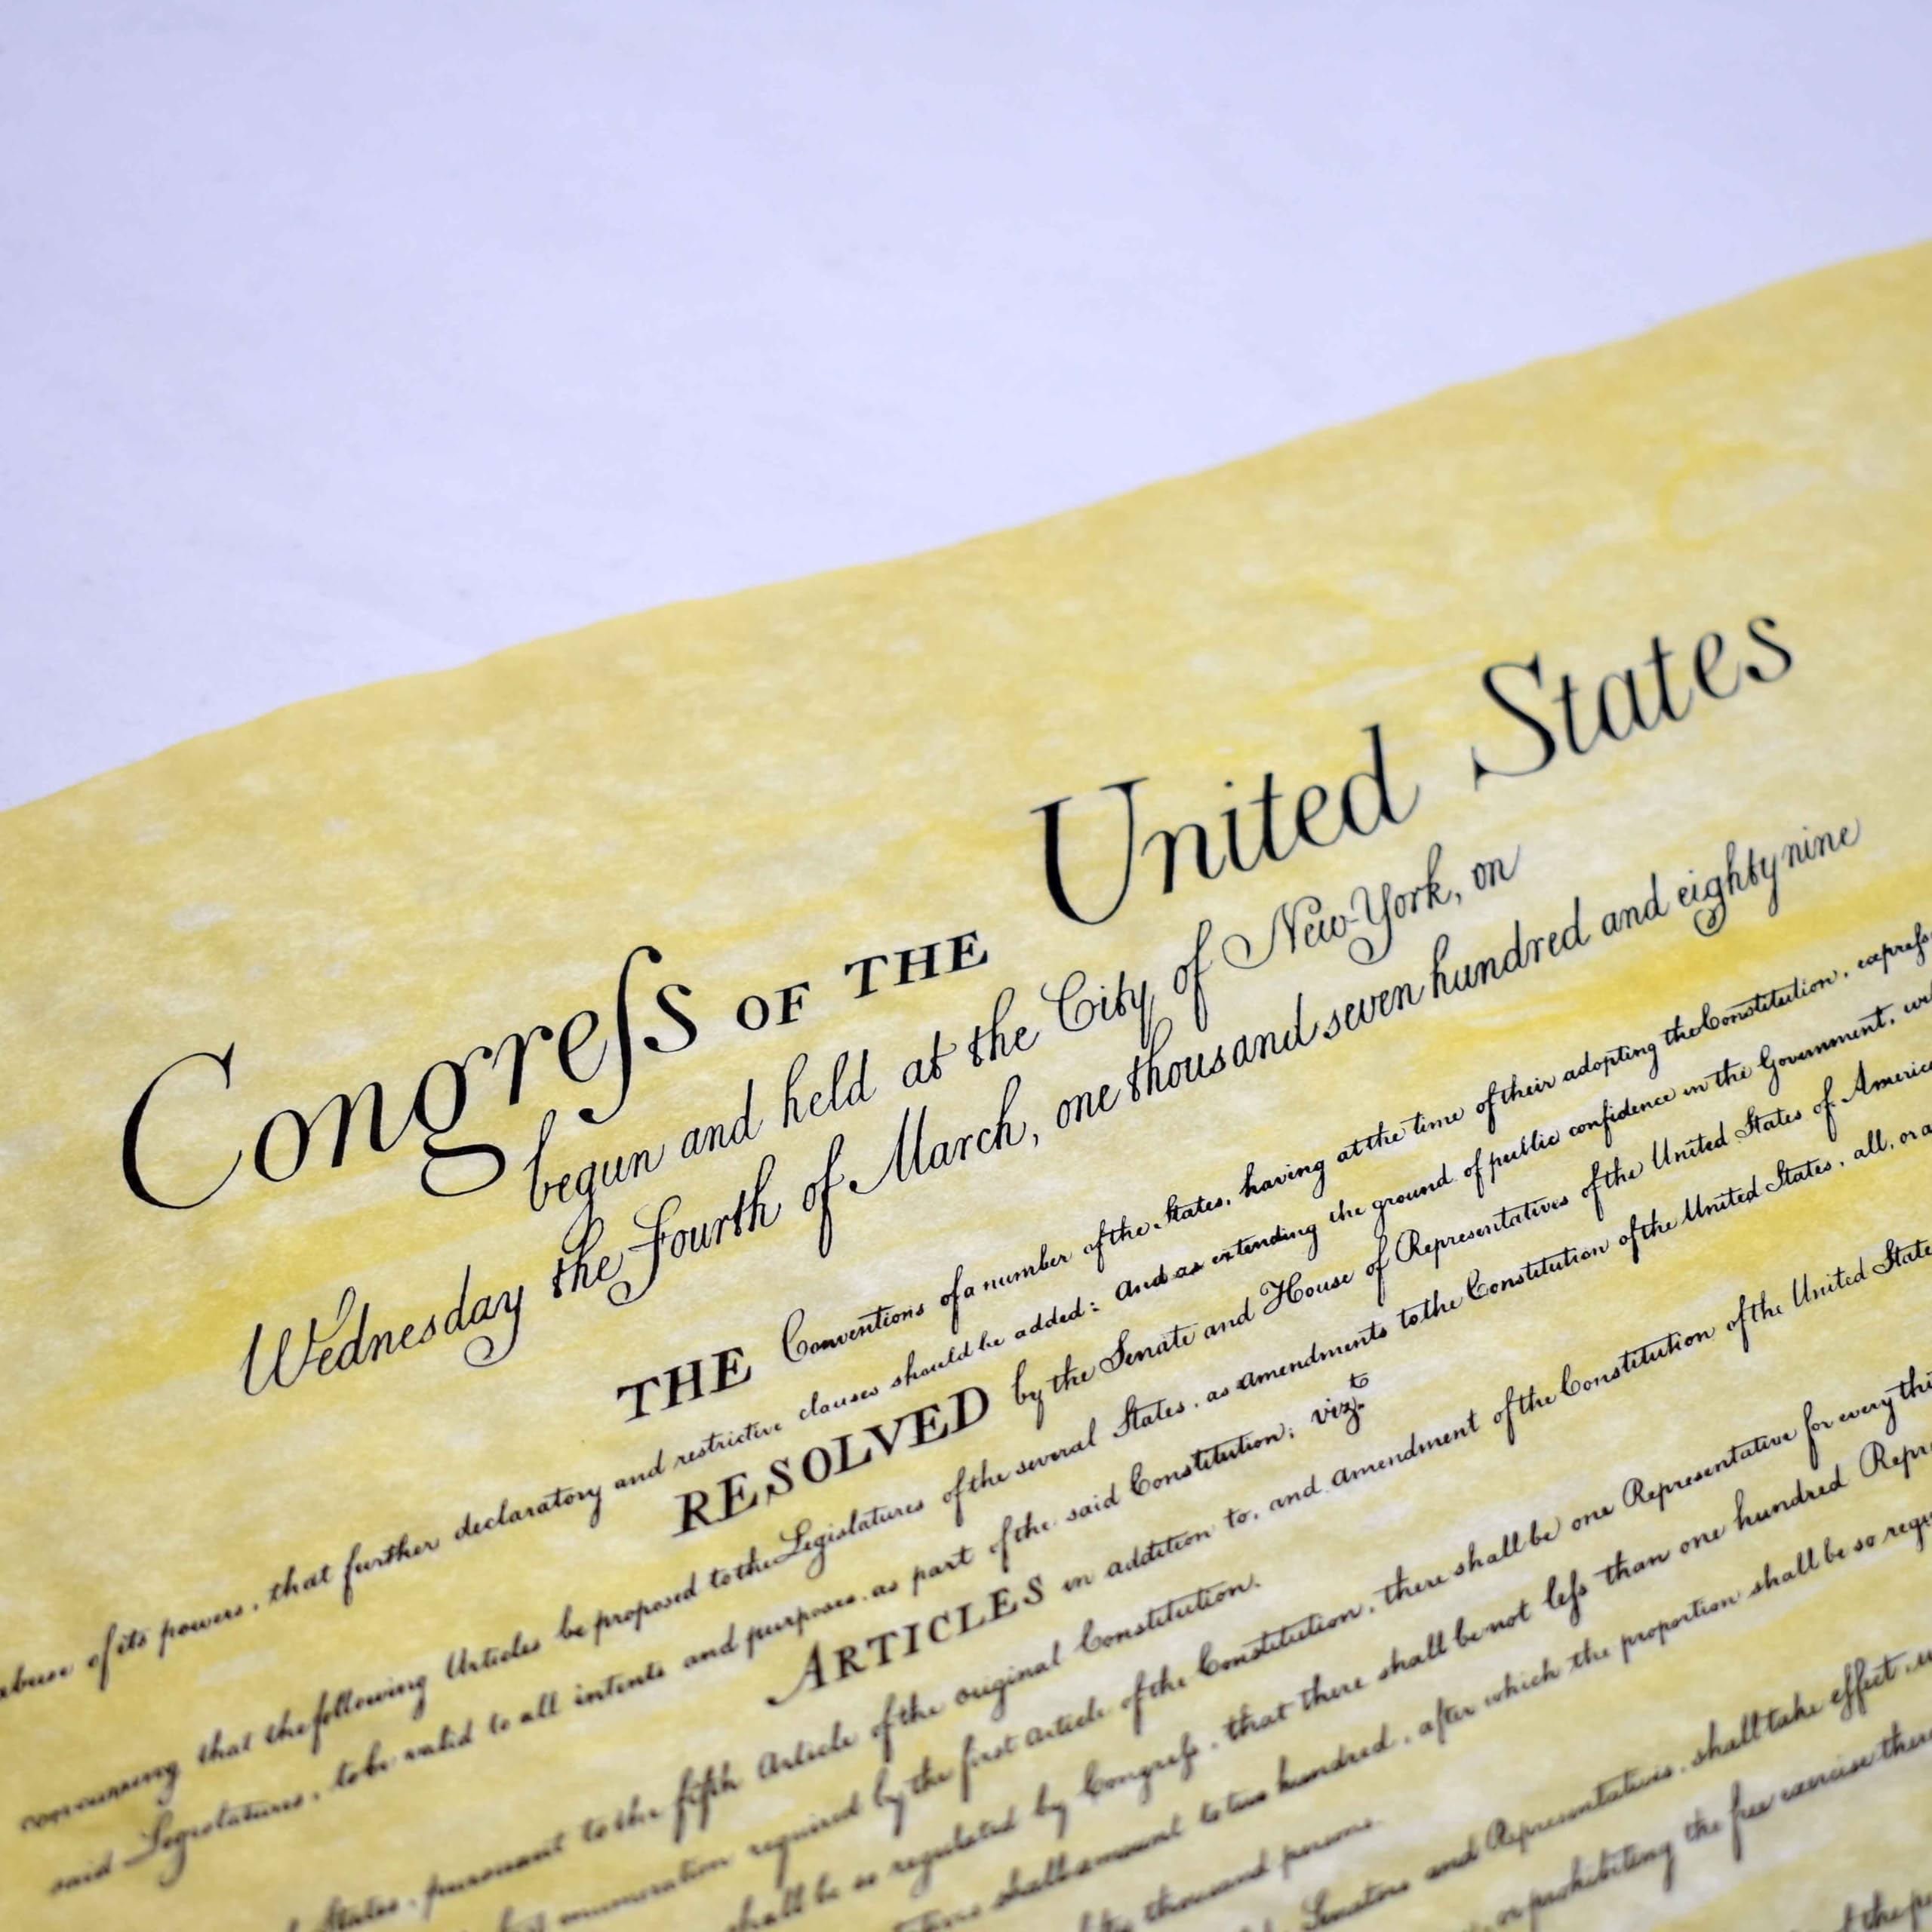 Congreſs OF THE United States
begun and held at the City of New-York, on
Wednesday the Fourth of March, one thousand seven hundred and eighty nine
THE Conventions of a number of the States, having at the time of their adopting the Constitution, expreſs
abuse of its powers, that further declaratory and restrictive clauses should be added: And as extending the ground of public confidence in the Government, wi
RESOLVED by the Senate and House of Representatives of the United States of America
concurring that the following Articles be proposed to the Legislatures of the several States, as Amendments to the Constitution of the United States, all, or a
said Legislatures, to be valid to all intents and purposes, as part of the said Constitution; vizt.
ARTICLES in addition to, and amendment of the Constitution of the United State
States, pursuant to the fifth Article of the original Constitution.
enumeration required by the first Article of the Constitution, there shall be one Representative for every thi
shall be so regulated by Congreſs, that there shall be not leſs than one hundred Repre
shall amount to two hundred, after which the proportion shall be so regu
thousand persons.
Senators and Representatives, shall take effect, u
or prohibiting the free exercise there